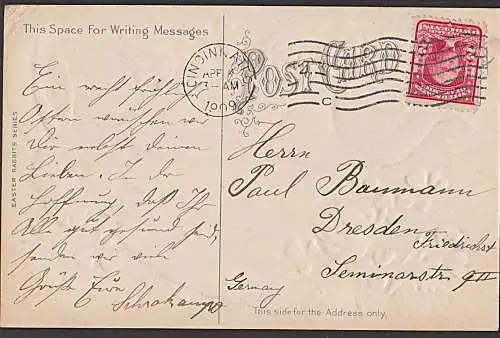 This Space For Writing Messages
Ein recht fröhliches
Ostern wünschen wir
Dir nebst deinen
Lieben. In der
Hoffnung, daß Ihr
Alle gut gesund seid,
senden wir viele
Grüße Eure
EASTER RABBITS SERIES
CINCINNATI
APR
7-AM
1909
C
Post Card
Herrn
Paul Baumann
Dresden
Friedrichst
Seminarstr. 9 II
Germany
This side for the Address only.